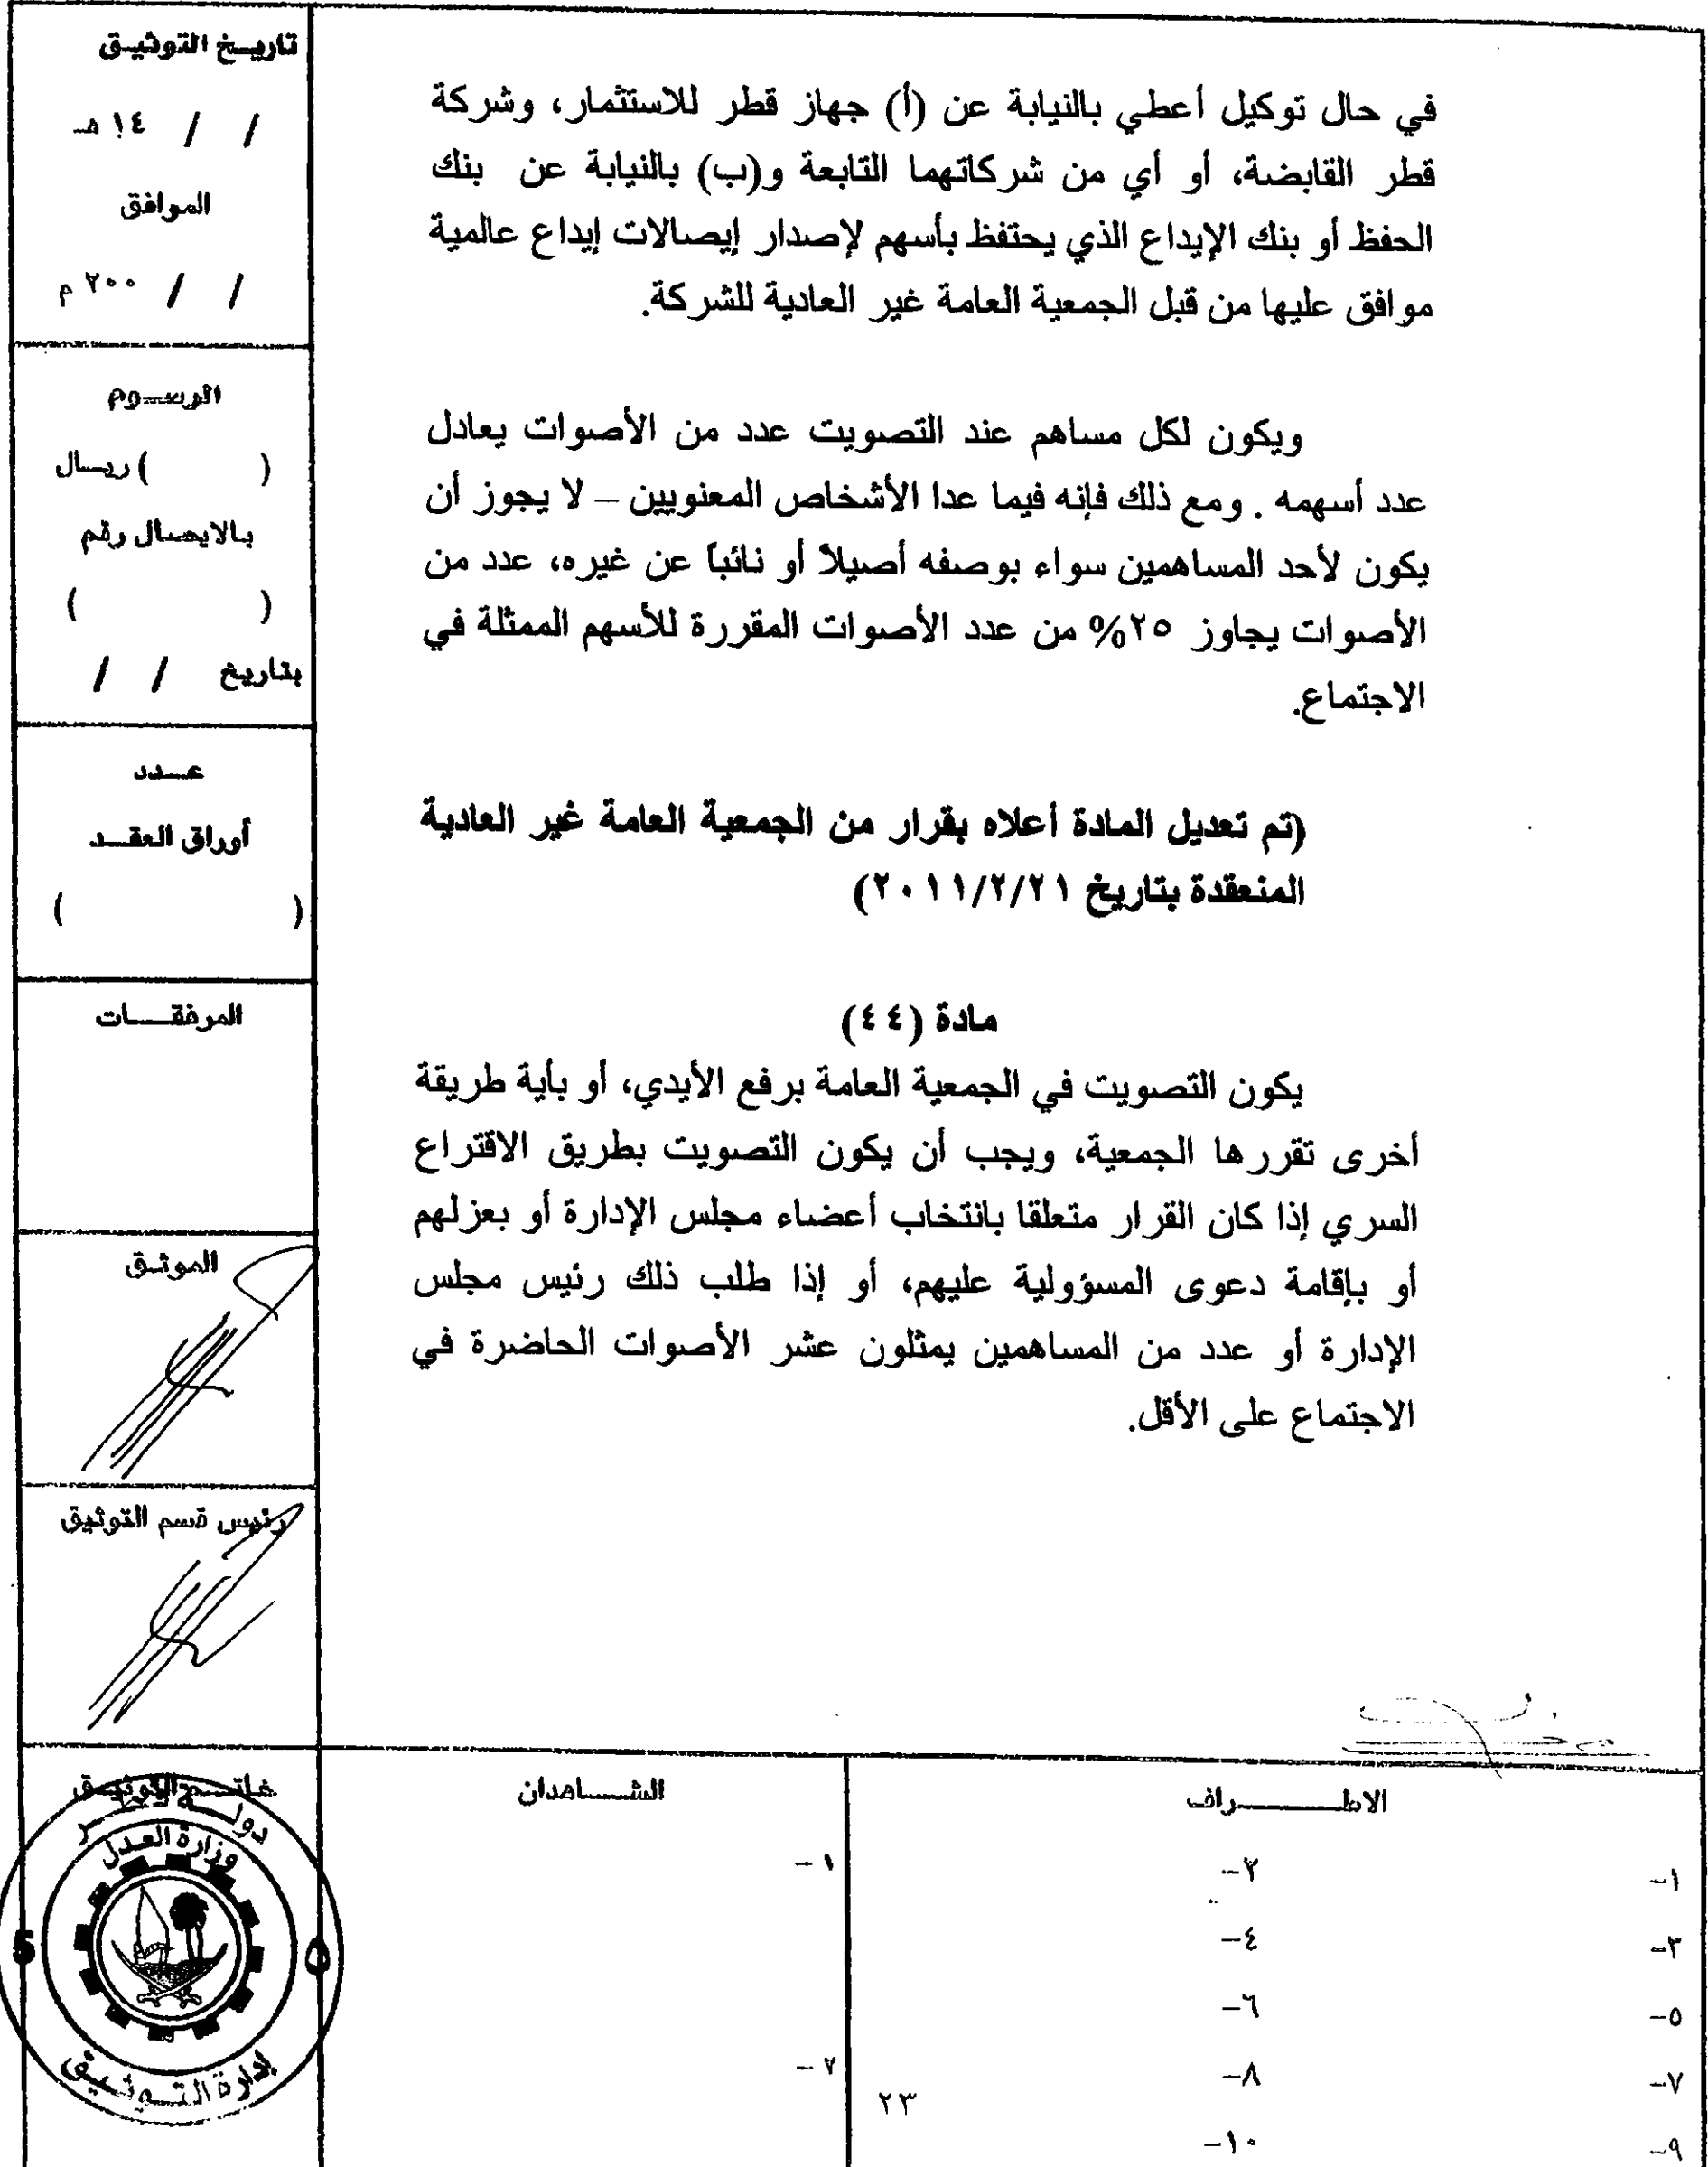 في حال توكيل أعطي بالنيابة عن (أ) جهاز قطر للاستثمار، وشركة
قطر القابضة، أو أي من شركاتهما التابعة و(ب) بالنيابة عن بنك
الحفظ أو بنك الإيداع الذي يحتفظ بأسهم لإصدار إيصالات إيداع عالمية
موافق عليها من قبل الجمعية العامة غير العادية للشركة.
ويكون لكل مساهم عند التصويت عدد من الأصوات يعادل
عدد أسهمه . ومع ذلك فإنه فيما عدا الأشخاص المعنويين – لا يجوز أن
يكون لأحد المساهمين سواء بوصفه أصيلاً أو نائباً عن غيره، عدد من
الأصوات يجاوز ٢٥% من عدد الأصوات المقررة للأسهم الممثلة في
الاجتماع.
(تم تعديل المادة أعلاه بقرار من الجمعية العامة غير العادية
المنعقدة بتاريخ ٢٠١١/٢/٢١)
مادة (٤٤)
يكون التصويت في الجمعية العامة برفع الأيدي، أو بأية طريقة
أخرى تقررها الجمعية، ويجب أن يكون التصويت بطريق الاقتراع
السري إذا كان القرار متعلقا بانتخاب أعضاء مجلس الإدارة أو بعزلهم
أو بإقامة دعوى المسؤولية عليهم، أو إذا طلب ذلك رئيس مجلس
الإدارة أو عدد من المساهمين يمثلون عشر الأصوات الحاضرة في
الاجتماع على الأقل.
تاريخ التوثيق
/ / ١٤ هـ
الموافق
/ / ٢٠٠ م
الرسوم
( ) ريال
بالايصال رقم
( )
بتاريخ / /
عدد
أوراق العقد
( )
المرفقات
الموثق
رئيس قسم التوثيق
الاطراف
١-
٢-
٣-
٤-
٥-
٦-
٧-
٨-
٩-
١٠-
الشاهدان
١ -
٢ -
خاتم التوثيق
دولة قطر
وزارة العدل
5 ٥
إدارة التوثيق
٢٣